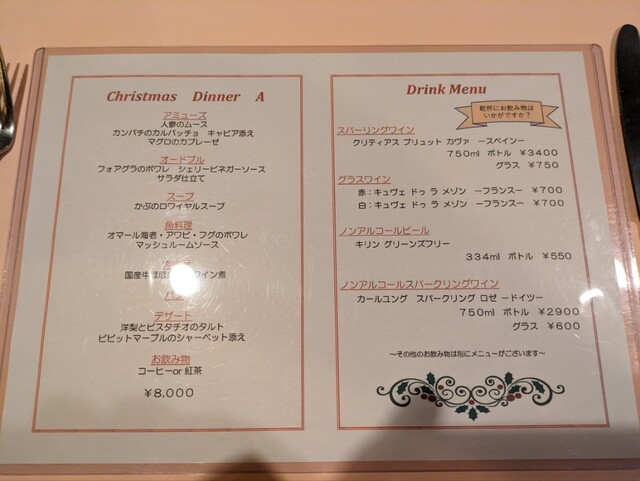 Christmas Dinner A
アミューズ
人参のムース
カンパチのカルパッチョ キャビア添え
マグロのカプレーゼ
オードブル
フォアグラのポワレ シェリービネガーソース
サラダ仕立て
スープ
かぶのロワイヤルスープ
魚料理
オマール海老・アワビ・フグのポワレ
マッシュルームソース
国産牛ほほ ワイン煮
パン
デザート
洋梨とピスタチオのタルト
ピピットマーブルのシャーベット添え
お飲み物
コーヒーor 紅茶
￥8,000
Drink Menu
乾杯にお飲み物は
いかがですか？
スパーリングワイン
クリティアス ブリュット カヴァ ースペインー
750ml ボトル ￥3400
グラス ￥750
グラスワイン
赤：キュヴェ ドゥ ラ メゾン －フランスー ￥700
白：キュヴェ ドゥ ラ メゾン －フランスー ￥700
ノンアルコールビール
キリン グリーンズフリー
334ml ボトル ￥550
ノンアルコールスパークリングワイン
カールユング スパークリング ロゼ ードイツー
750ml ボトル ￥2900
グラス ￥600
～その他のお飲み物は別にメニューがございます～